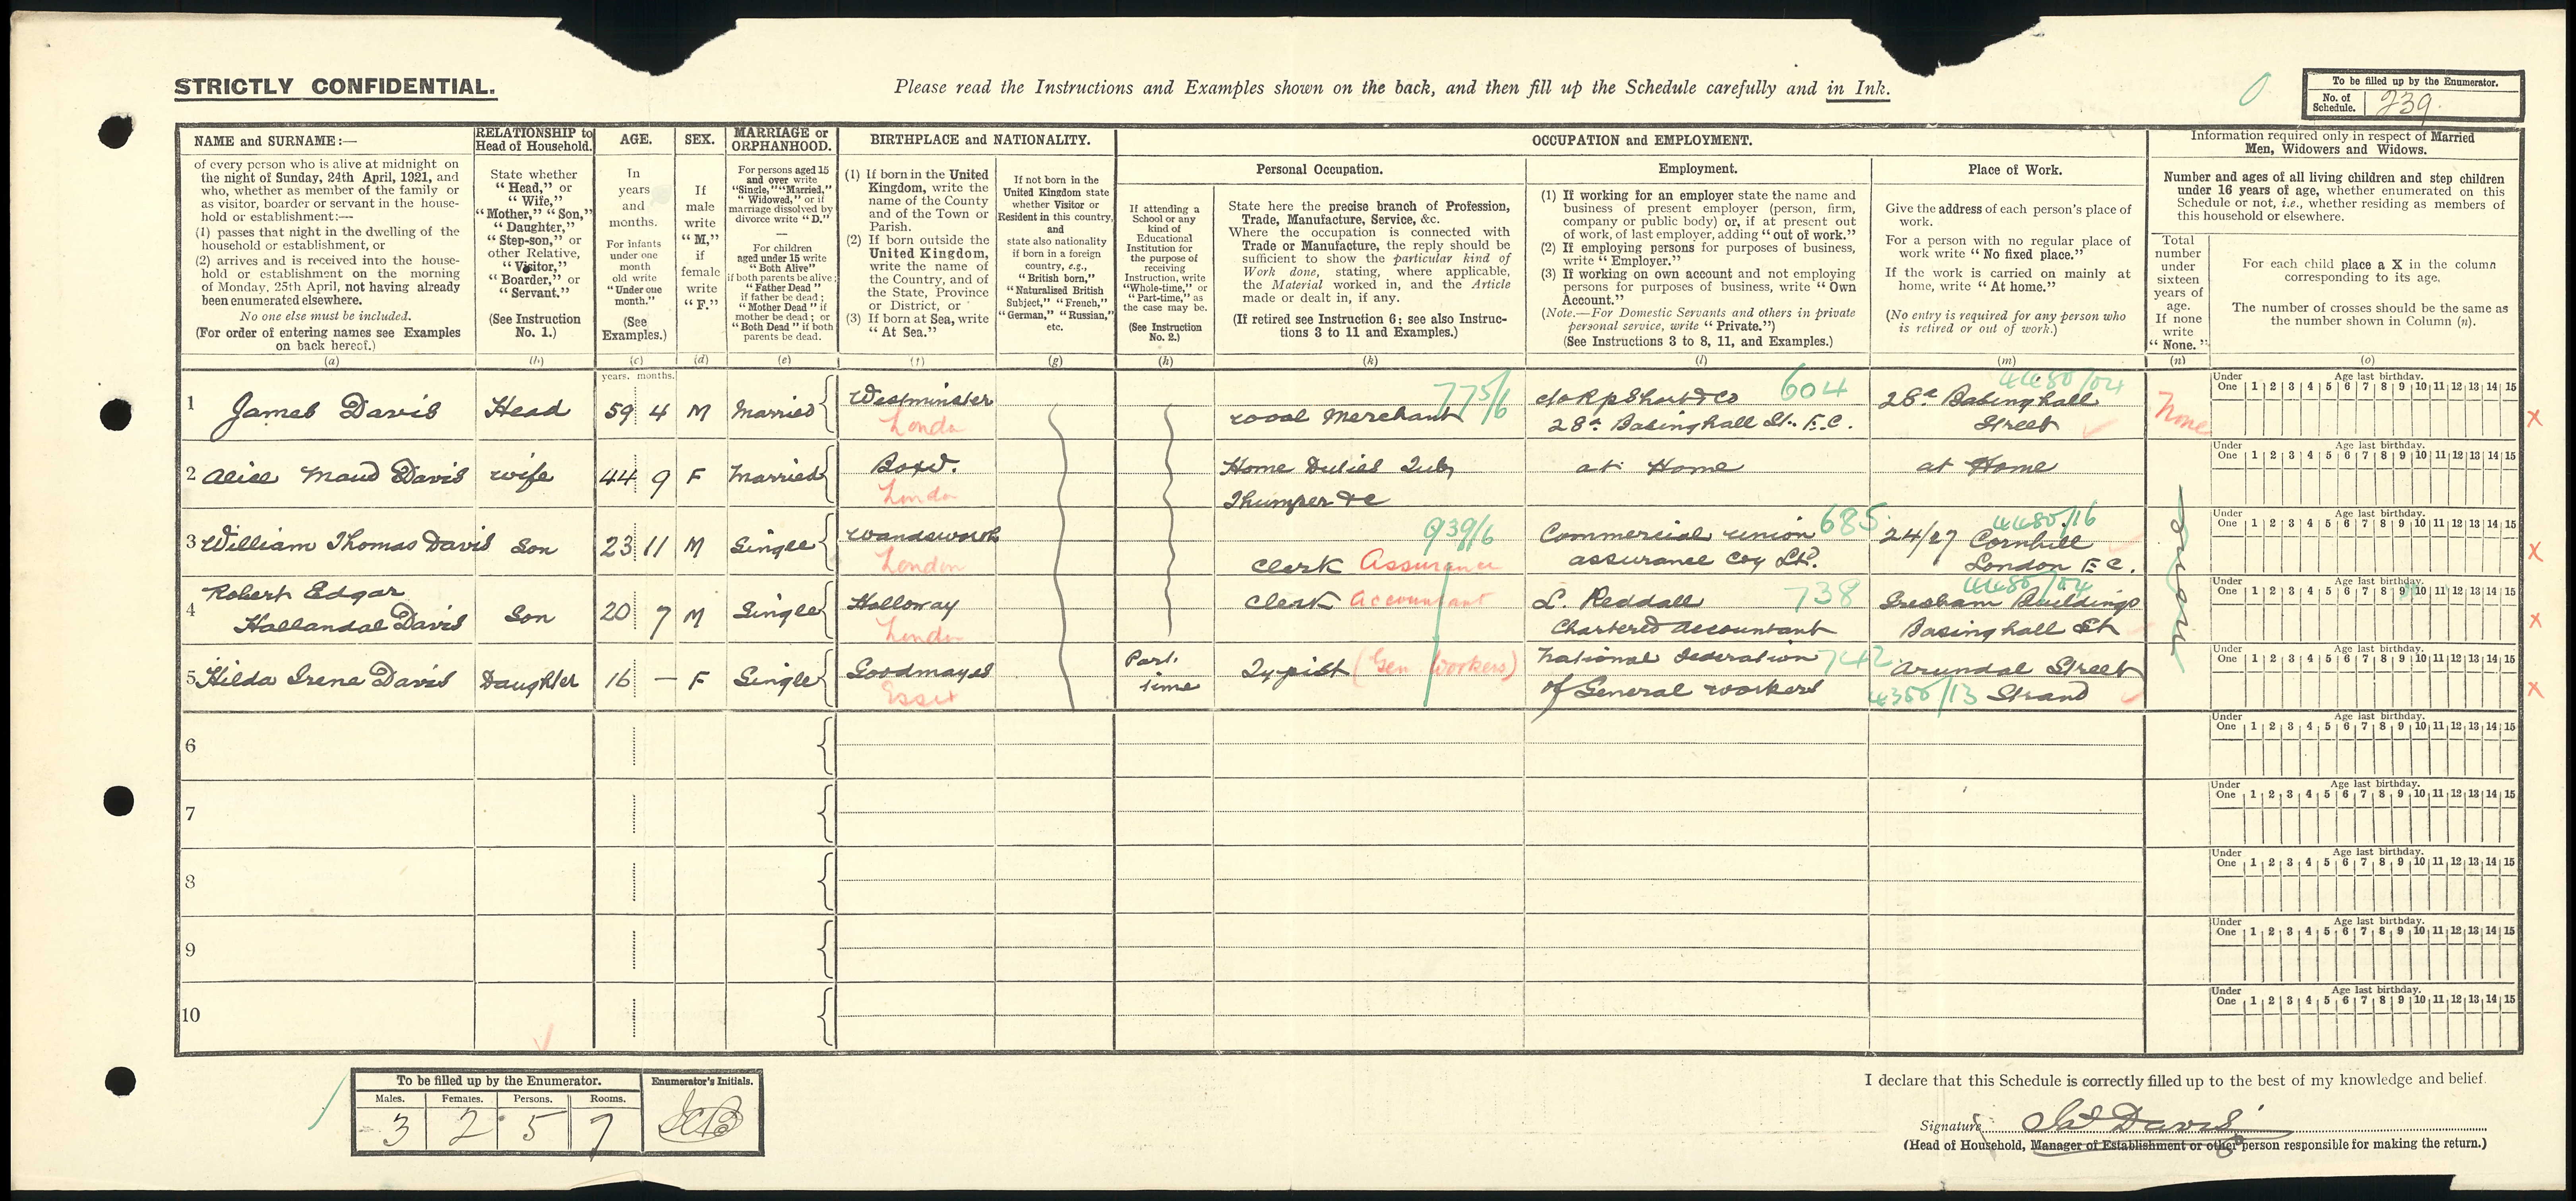 STRICTLY CONFIDENTIAL.
Please read the Instructions and Examples shown on the back, and then fill up the Schedule carefully and in Ink.
0
To be filled up by the Enumerator.
No. of Schedule. 239.
NAME and SURNAME:—
of every person who is alive at midnight on
the night of Sunday, 24th April, 1921, and
who, whether as member of the family or
as visitor, boarder or servant in the house-
hold or establishment:—
(1) passes that night in the dwelling of the
household or establishment, or
(2) arrives and is received into the house-
hold or establishment on the morning
of Monday, 25th April, not having already
been enumerated elsewhere.
No one else must be included.
(For order of entering names see Examples
on back hereof.)
(a)
RELATIONSHIP to
Head of Household.
State whether
"Head," or
"Wife,"
"Mother," "Son,"
"Daughter,"
"Step-son," or
other Relative,
"Visitor,"
"Boarder," or
"Servant."
(See Instruction
No. 1.)
(b)
AGE.
In
years
and
months.
For infants
under one
month
old write
"Under one
month."
(See
Examples.)
(c)
SEX.
If
male
write
"M,"
if
female
write
"F."
(d)
MARRIAGE or
ORPHANHOOD.
For persons aged 15
and over write
"Single," "Married,"
"Widowed," or if
marriage dissolved by
divorce write "D."
—
For children
aged under 15 write
"Both Alive"
if both parents be alive;
"Father Dead"
if father be dead;
"Mother Dead" if
mother be dead; or
"Both Dead" if both
parents be dead.
(e)
BIRTHPLACE and NATIONALITY.
(1) If born in the United
Kingdom, write the
name of the County
and of the Town or
Parish.
(2) If born outside the
United Kingdom,
write the name of
the Country, and of
the State, Province
or District, or
(3) If born at Sea, write
"At Sea."
(f)
If not born in the
United Kingdom state
whether Visitor or
Resident in this country,
and
state also nationality
if born in a foreign
country, e.g.,
"British born,"
"Naturalised British
Subject," "French,"
"German," "Russian,"
etc.
(g)
OCCUPATION and EMPLOYMENT.
If attending a
School or any
kind of
Educational
Institution for
the purpose of
receiving
Instruction, write
"Whole-time," or
"Part-time," as
the case may be.
(See Instruction
No. 2.)
(h)
Personal Occupation.
State here the precise branch of Profession,
Trade, Manufacture, Service, &c.
Where the occupation is connected with
Trade or Manufacture, the reply should be
sufficient to show the particular kind of
Work done, stating, where applicable,
the Material worked in, and the Article
made or dealt in, if any.
(If retired see Instruction 6; see also Instruc-
tions 3 to 11 and Examples.)
(k)
Employment.
(1) If working for an employer state the name and
business of present employer (person, firm,
company or public body) or, if at present out
of work, of last employer, adding "out of work."
(2) If employing persons for purposes of business,
write "Employer."
(3) If working on own account and not employing
persons for purposes of business, write "Own
Account."
(Note.—For Domestic Servants and others in private
personal service, write "Private.")
(See Instructions 3 to 8, 11, and Examples.)
(l)
Place of Work.
Give the address of each person's place of
work.
For a person with no regular place of
work write "No fixed place."
If the work is carried on mainly at
home, write "At home."
(No entry is required for any person who
is retired or out of work.)
(m)
Information required only in respect of Married
Men, Widowers and Widows.
Number and ages of all living children and step children
under 16 years of age, whether enumerated on this
Schedule or not, i.e., whether residing as members of
this household or elsewhere.
Total
number
under
sixteen
years of
age.
If none
write
"None."
(n)
For each child place a X in the column
corresponding to its age.
The number of crosses should be the same as
the number shown in Column (n).
(o)
years. months.
1 James Davis Head 59 4 M Married Westminster London
775/6
Wool Merchant
604
c/o R p Short & Co
28a Basinghall St. E.C.
4480/04
28a Basinghall
Street
None
Under One Age last birthday. 1 2 3 4 5 6 7 8 9 10 11 12 13 14 15
X
2 Alice Maud Davis wife 44 9 F Married Bow. London
Home Duties Tub,
Thumper &c
at Home
at Home
Under One Age last birthday. 1 2 3 4 5 6 7 8 9 10 11 12 13 14 15
3 William Thomas Davis Son 23 11 M Single Wandsworth London
939/6
Clerk Assurance
685
Commercial Union
assurance Coy Ltd.
4480/16
24/27 Cornhill
London E C.
Under One Age last birthday. 1 2 3 4 5 6 7 8 9 10 11 12 13 14 15
X
4 Robert Edgar
Hallandal Davis Son 20 7 M Single Holloway London
Clerk Accountant
738
L. Reddall
Chartered accountant
4480/04
Gresham Buildings
Basinghall St
Under One Age last birthday. 1 2 3 4 5 6 7 8 9 10 11 12 13 14 15
X
5 Hilda Irene Davis Daughter 16 — F Single Goodmayes Essex
Part.
time
Typist (Gen. Workers)
742
National Federation
of General workers
Arundal Street
4350/13 Strand
Under One Age last birthday. 1 2 3 4 5 6 7 8 9 10 11 12 13 14 15
X
6
Under One Age last birthday. 1 2 3 4 5 6 7 8 9 10 11 12 13 14 15
7
Under One Age last birthday. 1 2 3 4 5 6 7 8 9 10 11 12 13 14 15
8
Under One Age last birthday. 1 2 3 4 5 6 7 8 9 10 11 12 13 14 15
9
Under One Age last birthday. 1 2 3 4 5 6 7 8 9 10 11 12 13 14 15
10
Under One Age last birthday. 1 2 3 4 5 6 7 8 9 10 11 12 13 14 15
To be filled up by the Enumerator.
Enumerator's Initials.
Males. Females. Persons. Rooms.
3 2 5 7
I declare that this Schedule is correctly filled up to the best of my knowledge and belief.
Signature Jas Davis
(Head of Household, Manager of Establishment or other person responsible for making the return.)